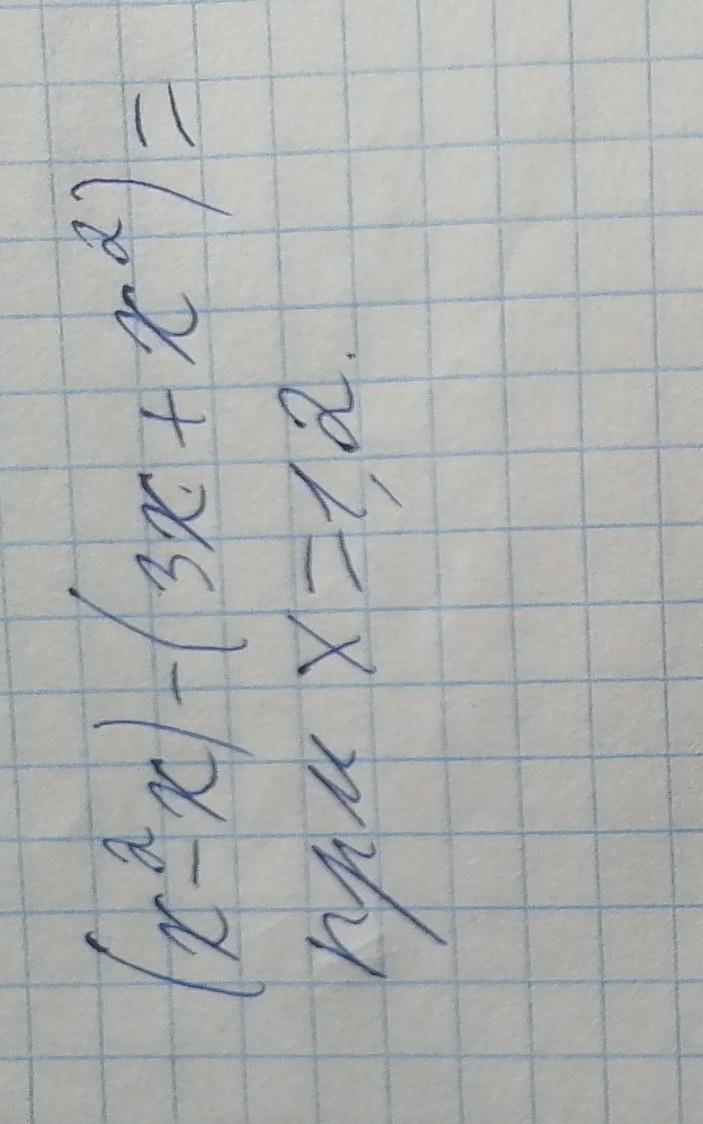 (x²-x)-(3x+x²)=
при x=1,2.